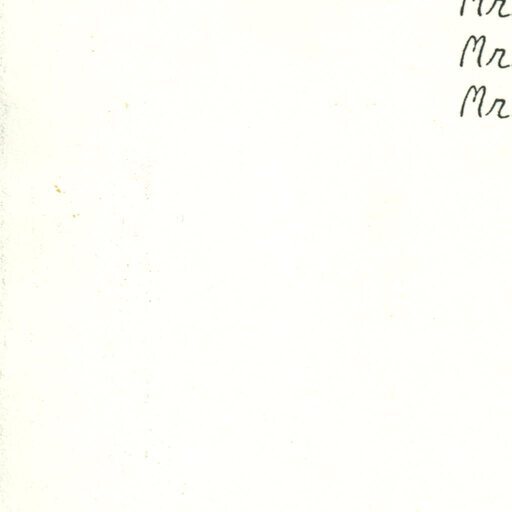 Mr
Mr
Mr